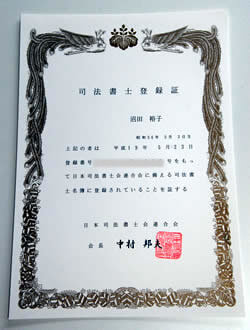 司法書士登録証
沼田 裕子
昭和54年 5月 30日
上記の者は 平成19年 5月23日
登録番号 号をもっ
て日本司法書士会連合会に備える司法書
士名簿に登録されていることを証する
日本司法書士会連合会
会長 中村 邦夫